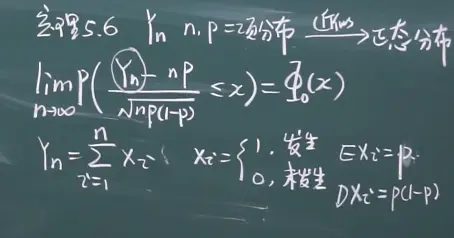 定理5.6 Yn n, p 二项分布 近似 → 正态分布
lim n→∞ P( (Yn - np) / √np(1-p) ≤ x ) = Φ₀(x)
Yn = ∑ i=1 n Xi Xi = { 1, 发生 EXi = p
0, 未发生 DXi = p(1-p)